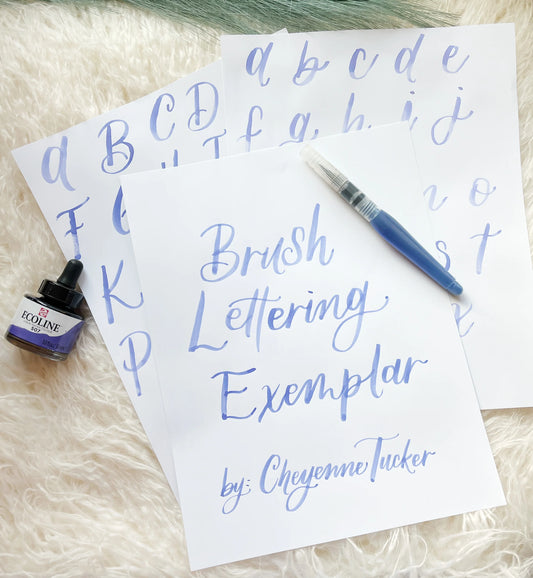 a b c d e
a B C D
f g h i j
F
n o
K
s t
P
z
Brush
Lettering
Exemplar
by: Cheyenne Tucker
ECOLINE
507